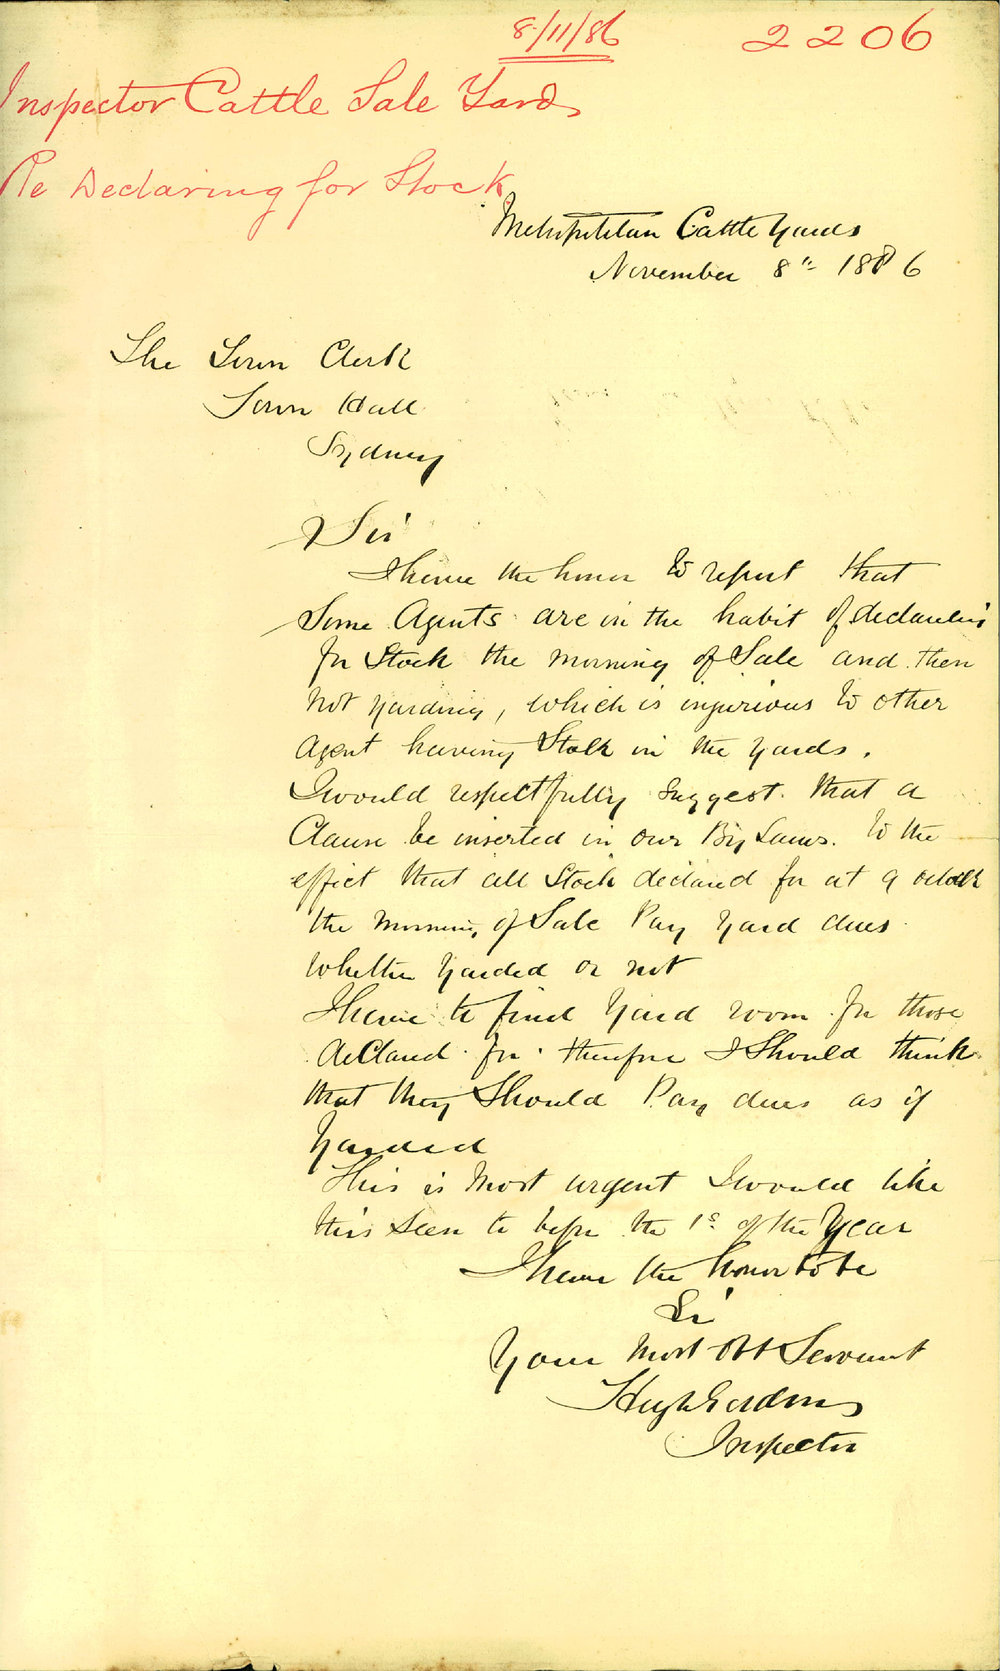 8/11/86 2206
Inspector Cattle Sale Yards
Re Declaring for Stock
Metropolitan Cattle Yards
November 8th 1886
The Town Clerk
Town Hall
Sydney
Sir
I have the honor to report that
Some Agents are in the habit of declaring
for Stock the morning of Sale and then
not yarding, which is injurious to other
Agent having Stock in the yards.
I would respectfully suggest that a
Clause be inserted in our By Laws. to the
effect that all Stock declared for at 9 oclock
the morning of Sale Pay Yard dues
whether yarded or not
I have to find Yard room for those
declared for. therefore I Should think
that they Should Pay dues as if
Yarded
This is most urgent I would like
this seen to before the 1st of the Year
I have the honor to be
Sir
Your most Obt Servant
Hugh
Inspector